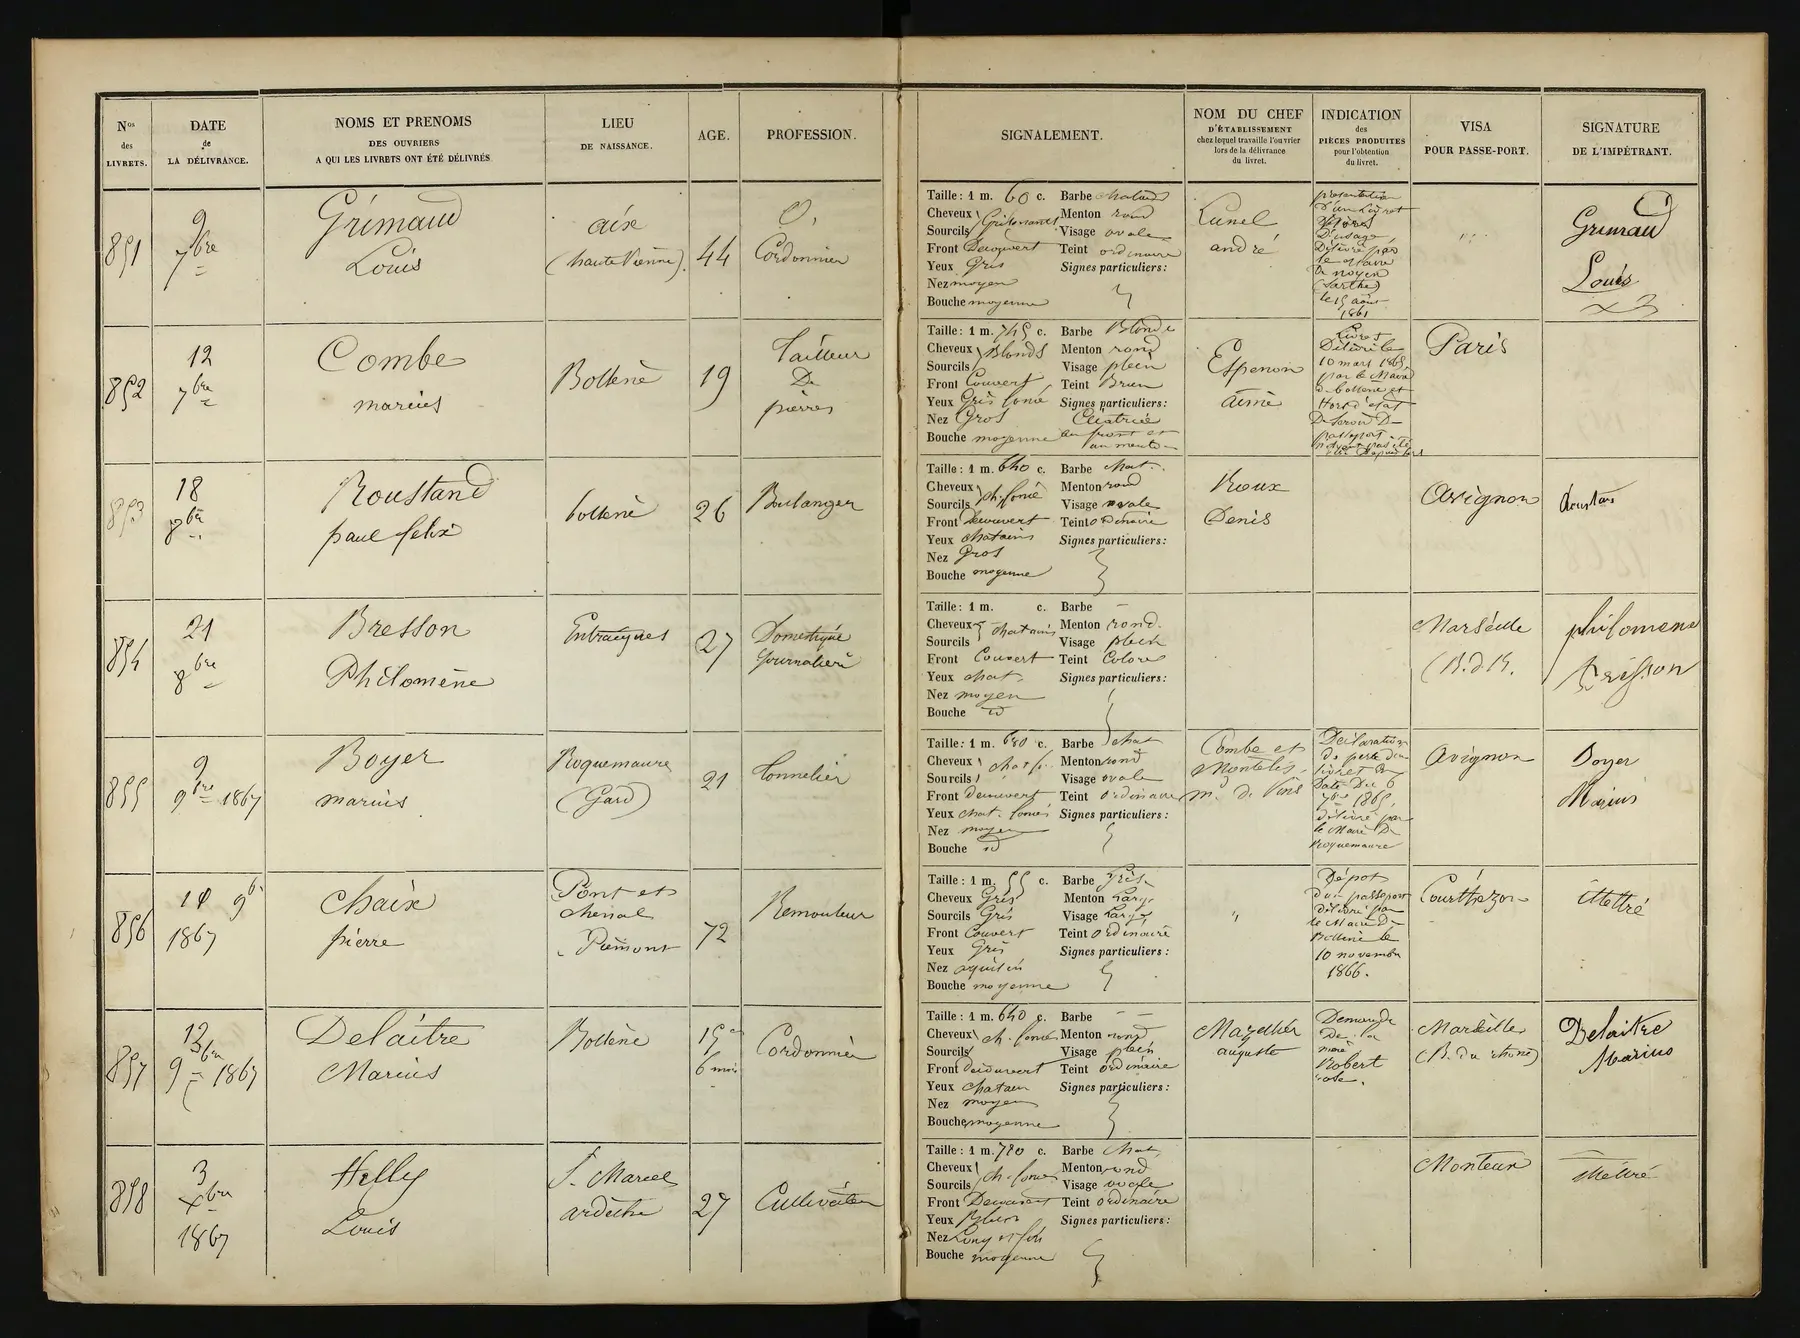 Nos des LIVRETS.
DATE de LA DÉLIVRANCE.
NOMS ET PRENOMS
DES OUVRIERS
A QUI LES LIVRETS ONT ÉTÉ DÉLIVRÉS
LIEU
DE NAISSANCE.
AGE.
PROFESSION.
SIGNALEMENT.
NOM DU CHEF
D'ÉTABLISSEMENT
chez lequel travaille l'ouvrier
lors de la délivrance
du livret.
INDICATION
des
PIÈCES PRODUITES
pour l'obtention
du livret.
VISA
POUR PASSE-PORT.
SIGNATURE
DE L'IMPÉTRANT.
851
9
7bre
Grimaud
Louis
aixe
(haute Vienne).
44
Cordonnier
Taille: 1 m. 60 c. Barbe chatains
Cheveux Grisonnants Menton rond
Sourcils Visage ovale
Front Decouvert Teint ordinaire
Yeux Gris Signes particuliers:
Nez moyen
Bouche moyenne
Lunel
andré
presentation
d'un Livret
Délivré par
le Maire
De noyen
(Sarthe)
le 15 août
1861
Grimaud
Louis
852
12
7bre
Combe
marius
Bollène
19
Tailleur
De
pierres
Taille: 1 m. 745 c. Barbe Blonde
Cheveux Blonds Menton rond
Sourcils Visage plein
Front Couvert Teint Brun
Yeux Gris foncé Signes particuliers:
Nez Gros Cicatrice
Bouche moyenne au front et
au menton
Espenon
aimé
Livret
Délivré le
10 mars 1865
par le Maire
de bollène et
Hors d'etat
De Servir De
passeport
Paris
853
18
8bre
Roustand
paul felix
bollene
26
Boulanger
Taille: 1 m. 640 c. Barbe chat.
Cheveux ch. foncé Menton rond
Sourcils Visage ovale
Front Decouvert Teint ordinaire
Yeux chatains Signes particuliers:
Nez Gros
Bouche moyenne
Roux
Denis
Avignon
854
21
8bre
Bresson
Philomène
Entraigues
27
Domestique
Journalière
Taille: 1 m. c. Barbe —
Cheveux chatains Menton rond.
Sourcils Visage plein
Front Couvert Teint Coloré
Yeux chat. Signes particuliers:
Nez moyen
Bouche id
Marseille
(B. d R.
philomène
Brésson
855
9
9bre 1867
Boyer
marius
Roquemaure
(Gard)
21
Tonnelier
Taille: 1 m. 680 c. Barbe chat
Cheveux chat f. Menton rond
Sourcils Visage ovale
Front decouvert Teint ordinaire
Yeux chat. foncés Signes particuliers:
Nez moyen
Bouche id
Combe et
Monteils,
md de Vins
Déclaration
de perte d'un
livret En
Date Du 6
7bre 1865,
délivré par
le Maire De
Roquemaure
Avignon
Boyer
Marius
856
14 9b.
1867
Chaix
pierre
Pont et
Piémont
72
Remouleur
Taille: 1 m. 55 c. Barbe Gris
Cheveux Gris Menton Large
Sourcils Gris Visage Large
Front Couvert Teint ordinaire
Yeux Gris Signes particuliers:
Nez aquilin
Bouche moyenne
"
Dépot
d'un passeport
délivré par
le Maire De
Bollène le
10 novembre
1866.
Courthezon
illettré
857
13
9bre 1867
Delaitre
Marius
Bollène
15 a
6 mois
Cordonnier
Taille: 1 m. 640 c. Barbe —
Cheveux ch. foncé Menton rond
Sourcils Visage plein
Front découvert Teint ordinaire
Yeux chatain Signes particuliers:
Nez moyen
Bouche moyenne
auguste
Demande
De la
mère
Robert
rose.
Marseille
(B. du rhone)
Delaitre
Marius
858
3
Xbre
1867
Helly
Louis
St Marcel
ardèche
27
Cultivateur
Taille: 1 m. 780 c. Barbe chat,
Cheveux ch. foncé Menton rond
Sourcils Visage ovale
Front Decouvert Teint ordinaire
Yeux Bleus Signes particuliers:
Nez Long et fin
Bouche moyenne
Monteux
illétré